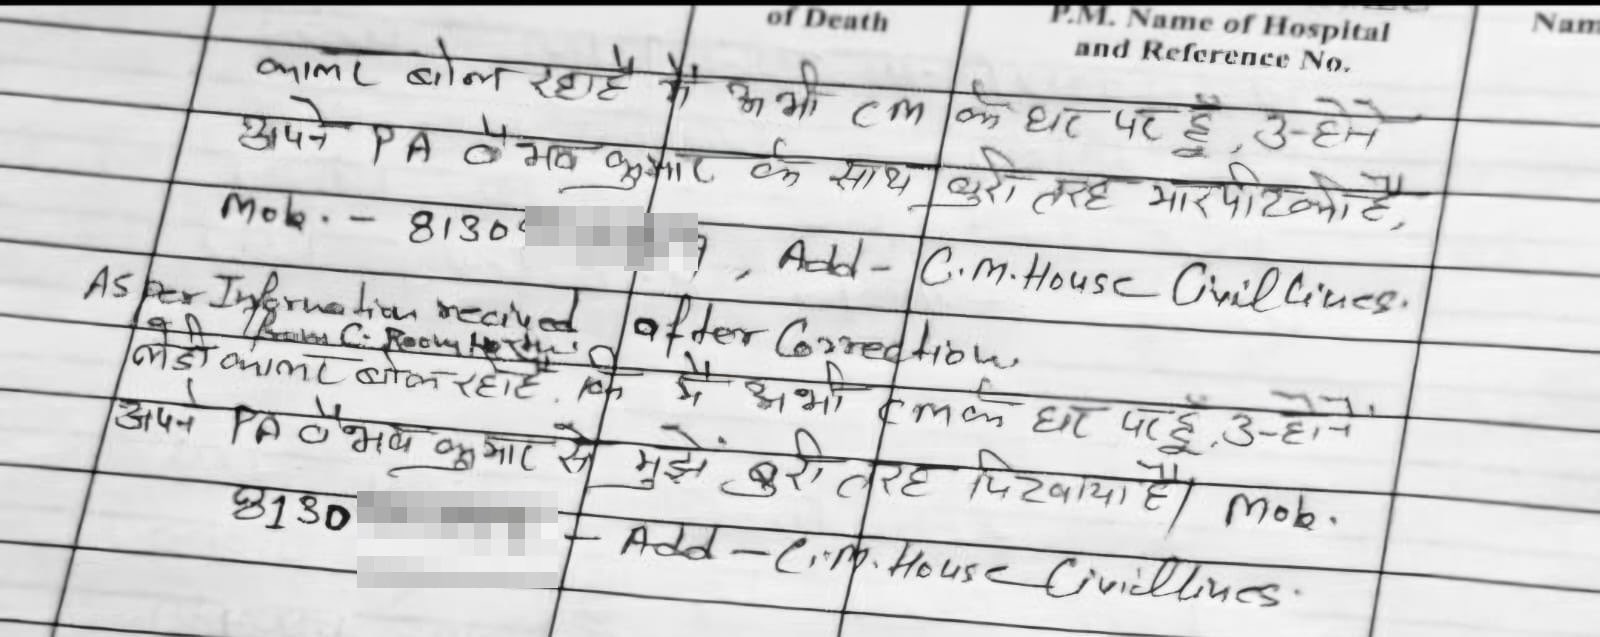 of Death
P.M. Name of Hospital
and Reference No.
Nam
कालर बोल रहा है मैं अभी CM के घर पर हूँ, उन्होंने
अपने PA वैभव कुमार के साथ बुरी तरह मारपीट की है,
Mob. - 8130 , Add - C.M. House Civil Lines.
As per Information recived after Correction.
from C. Room
लेडी कालर बोल रही है कि मैं अभी CM के घर पर हूँ, उन्होंने
अपने PA वैभव कुमार से मुझे बुरी तरह पिटवाया है। Mob.
8130 - Add - C.M. House Civillines.